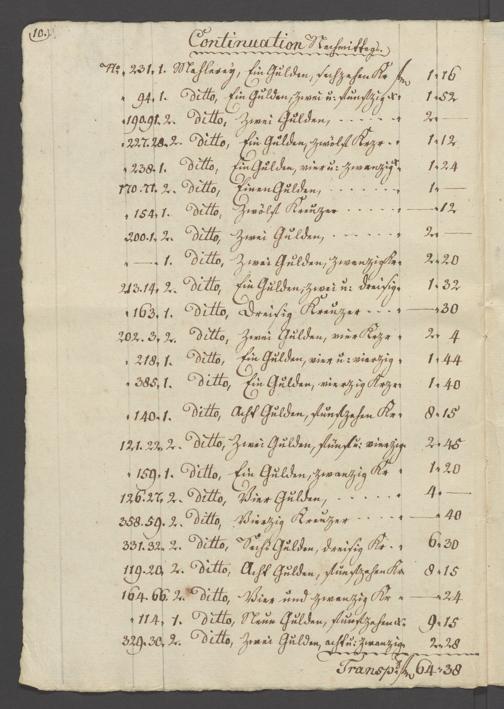 10.
Continuation Nachmittags.
No. 231. 1. Mahlerey, Ein Gulden, sechzehen Kr f 1 " 16
" 94. 1. Ditto, Ein Gulden, zwei u: funfzig Kr " 1 " 52
" 190.91. 2. Ditto, Zwei Gulden, - - - - " 2 " —
" 227.28. 2. Ditto, Ein Gulden, zwölf Krzr " 1 " 12
" 238. 1. Ditto, Ein Gulden, vier u: zwanzig " 1 " 24
170.71. 2. Ditto, Einen Gulden, - - - - " 1 " —
" 154. 1. Ditto, Zwölf Kreuzer - - - " — " 12
200.1. 2. Ditto, Zwei Gulden, - - - - " 2 " —
" — 1. Ditto, Zwei Gulden, zwanzig Kr " 2 " 20
213.14. 2. Ditto, Ein Gulden, zwei u: dreisig " 1 " 32
" 163. 1. Ditto, Dreisig Kreuzer - - - " — " 30
202.3. 2. Ditto, Zwei Gulden, vier Krzr " 2 " 4
" 218. 1. Ditto, Ein Gulden, vier u: vierzig " 1 " 44
" 385. 1. Ditto, Ein Gulden, vierzig Krzr " 1 " 40
" 140. 1. Ditto, Acht Gulden, funfzehen Kr " 8 " 15
121.22. 2. Ditto, Zwei Gulden, funf u: vierzig " 2 " 45
" 159. 1. Ditto, Ein Gulden, zwanzig Kr " 1 " 20
126.27. 2. Ditto, Vier Gulden, - - - - " 4 " —
358.59. 2. Ditto, Vierzig Kreuzer - - - " — " 40
331.32. 2. Ditto, Sechs Gulden, dreisig Kr " 6 " 30
119.20. 2. Ditto, Acht Gulden, funfzehen Kr 8 " 15
164.66. 2. Ditto, Vier und zwanzig Kr " — " 24
" 114. 1. Ditto, Neun Gulden, funfzehen Kr 9 " 15
329.30. 2. Ditto, Zwei Gulden, acht u: zwanzig 2 " 28
Transp: f 64 " 38